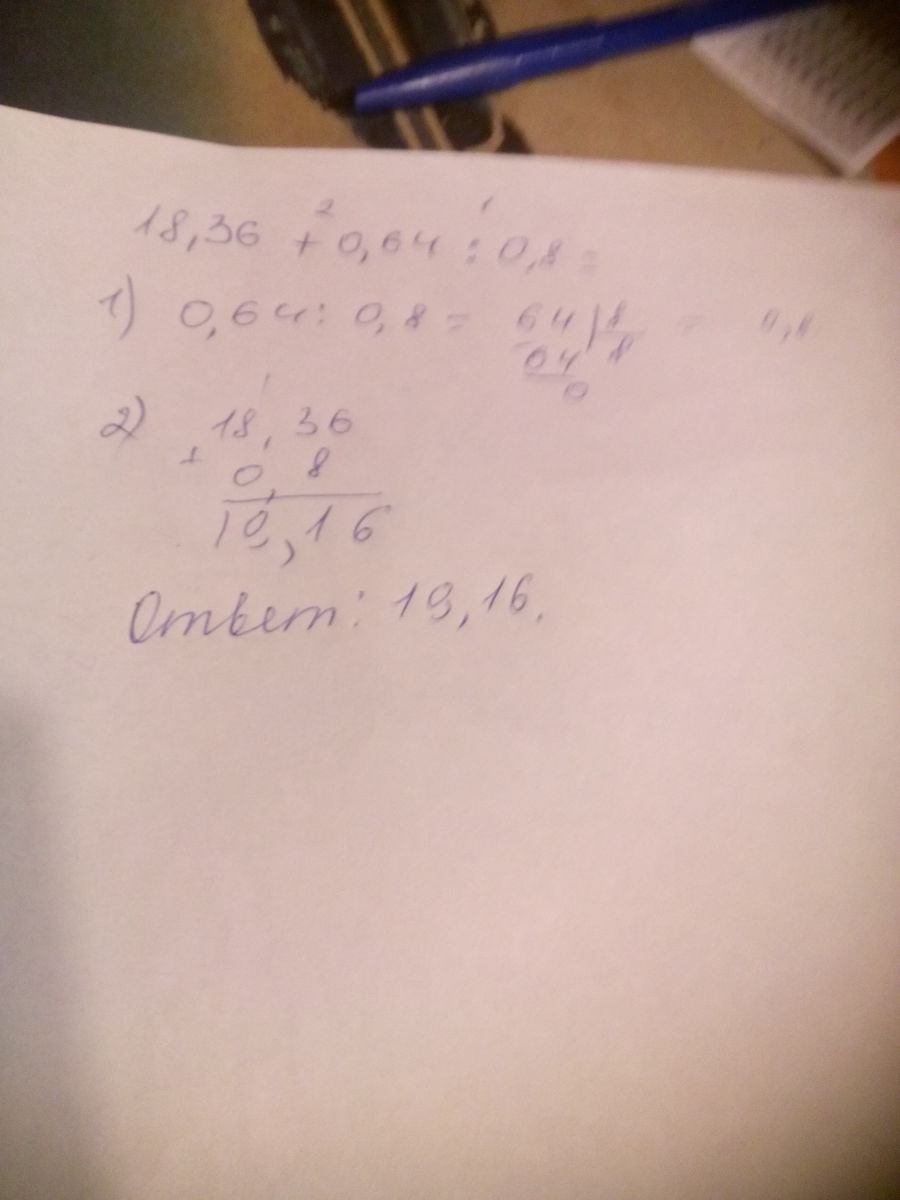 2 1
18,36 + 0,64 : 0,8 =
1) 0,64 : 0,8 = 64 | 8 = 0,8
- 64 8
0
1
2) 18,36
+ 0,8
19,16
Ответ: 19,16.